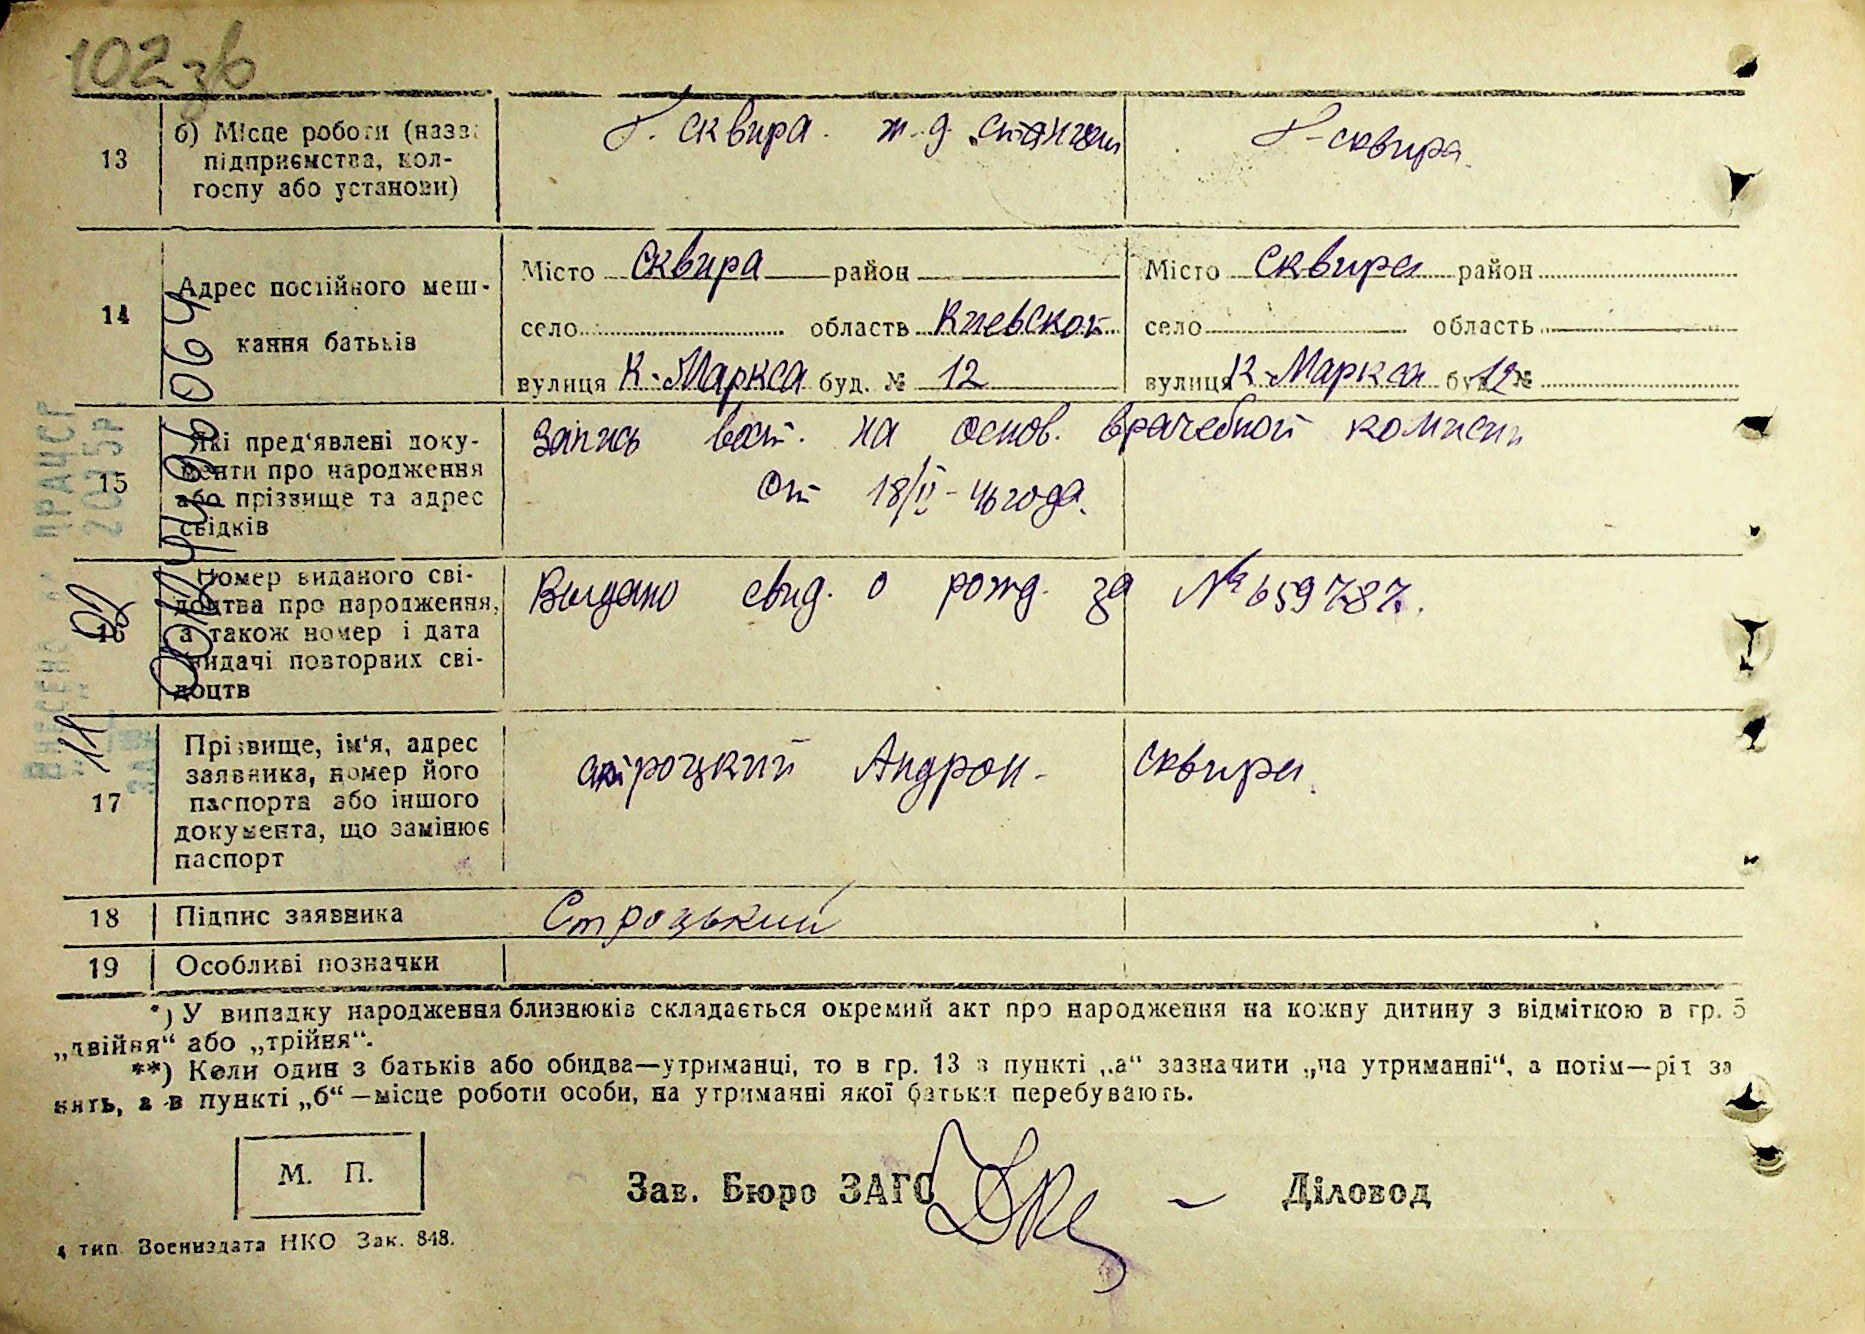 102 зв
13 б) Місце роботи (назва
підприємства, кол-
госпу або установи)
г. Сквира. ж-д станции
г-Сквира.
14 Адрес постійного меш-
кання батьків
Місто Сквира район
село область Киевской
вулиця К-Маркса буд. № 12
Місто Сквира район
село область
вулиця К-Маркса буд. № 12
15 Які пред'явлені доку-
менти про народження
або прізвище та адрес
свідків
Запись вост. на основ. врачебной комисии
от 18/II-46 года.
16 Номер виданого сві-
доцтва про народження,
а також номер і дата
видачі повторних сві-
доцтв
Выдано свид. о рожд. за № 659787.
17 Прізвище, ім'я, адрес
заявника, номер його
паспорта або іншого
документа, що замінює
паспорт
Строцкий Андрон - Сквира.
18 Підпис заявника
Строцький
19 Особливі позначки
*) У випадку народження близнюків складається окремий акт про народження на кожну дитину з відміткою в гр. 5
„двійня“ або „трійня“.
**) Коли один з батьків або обидва—утриманці, то в гр. 13 в пункті „а“ зазначити „на утриманні“, а потім—рід за
нять, а в пункті „б“—місце роботи особи, на утриманні якої батьки перебувають.
М. П.
Зав. Бюро ЗАГС
Діловод
4 тип. Воениздата НКО Зак. 848.